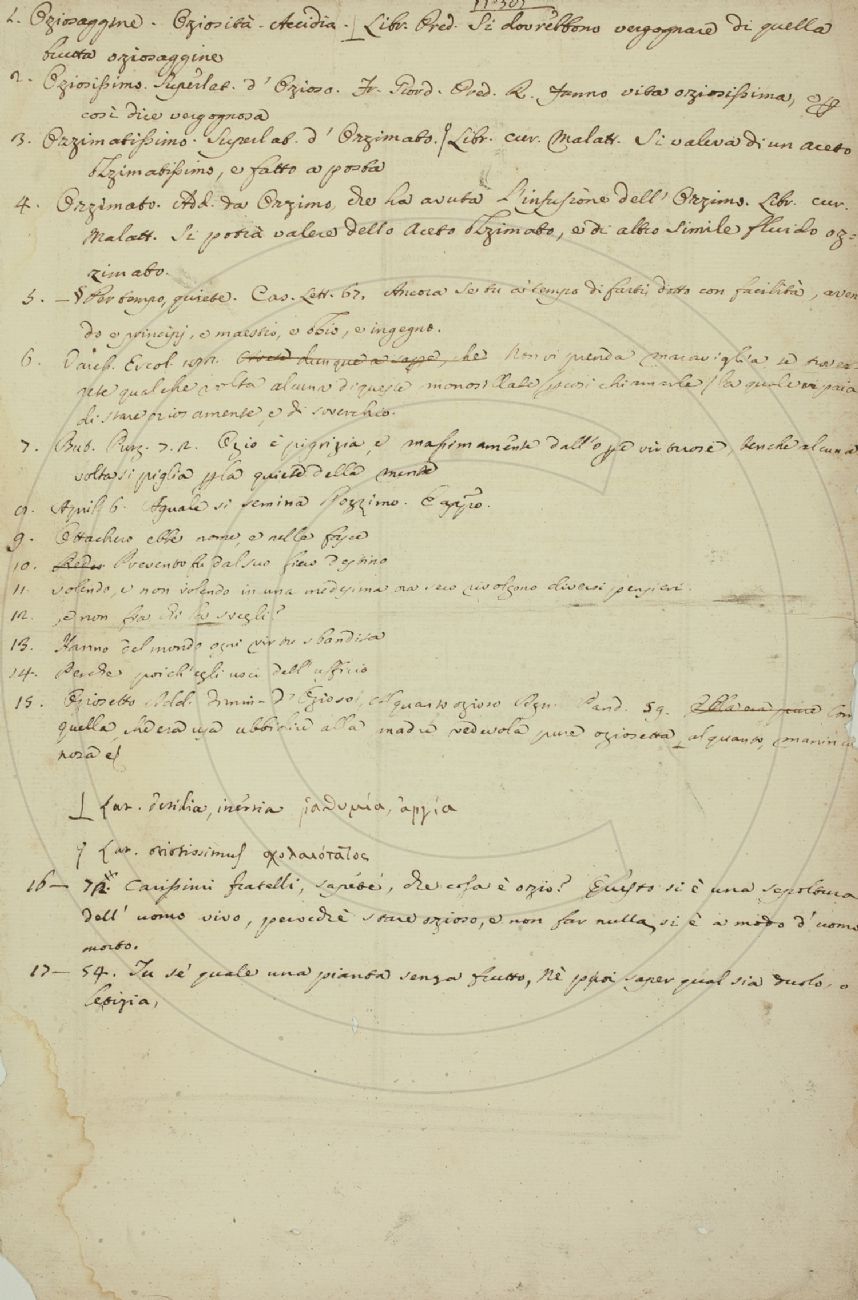 1. Oziosaggine. Oziosità. Accidia. Libr. Pred. Si dovrebbono vergognare di quella
brutta oziosaggine
2. Oziosissimo. Superlat. d' Ozioso. Fr. Giord. Pred. R. Fanno vita oziosissima, e
così dice vergognosa
3. Ozzimatissimo. Superlat. d' Ozzimato. Libr. cur. Malatt. Si valeva di un aceto
ozzimatissimo, e fatto a posta
4. Ozzimato. Add. da Ozzimo, che ha avuta l'infusione dell' Ozzimo. Libr. cur.
Malatt. Si potrà valere dello Aceto ozzimato, e di altro simile fluido oz=
zimato.
5. – § Per tempo, quiete. Cas. Lett. 67. Ancora se tu a tempo di farti dotto con facilità, aven
do e principj, e maestro, e ozio, e ingegno.
6. Varch. Ercol. che Non vi prenda maraviglia se trove-
rete qualche volta alcuna di queste monosillabe, la quale vi paia
di stare oziosamente, e di soverchio.
7. But. Purg. 7. 2. Ozio è pigrizia, e massimamente dall' opre virtuose, benche alcuna
volta si piglia per la quiete della mente
8. April. 6. Aguale si semina l'ozzimo.
9. Ottachero ebbe nome, e nelle fasce
10. Prevento fu dal suo fiero destino
11. volendo, e non volendo in una medesima ora seco rivolgono diversi pensieri.
12. , e non fra dì lo svegli?
13. Hanno del mondo ogni virtu sbandita
14. Perche poich' egli uscì dell' ufficio
15. Oziosetto Add. dimin. d' Ozioso, Alquanto ozioso Agn. Pand. 59. Con
quella, ch'era usa ubbidire alla madre vedevola pure oziosetta alquanto, maninco
nosa e
Lat. desidia, inertia ῥαθυμία, ἀργία
Lat. otiosissimus σχολαιότατος
16 – 72. Carissimi fratelli, sapete, che cosa è ozio? Questo si è una sepoltura
dell' uomo vivo, perocchè stare ozioso, e non far nulla, si è a modo d' uomo
morto.
17 – 54. Tu sè quale una pianta senza frutto, Nè puoi saper qual sia duolo, o
letizia,